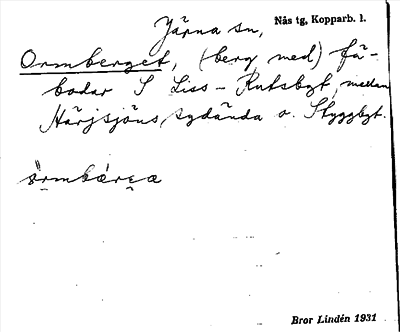 Järna sn, Nås tg, Kopparb. l.
Ormberget, (berg med) fä-
bodar S Liss-Rutsbgt, mellan
Härjsjöns sydända o. Styggbgt.
Bror Lindén 1931